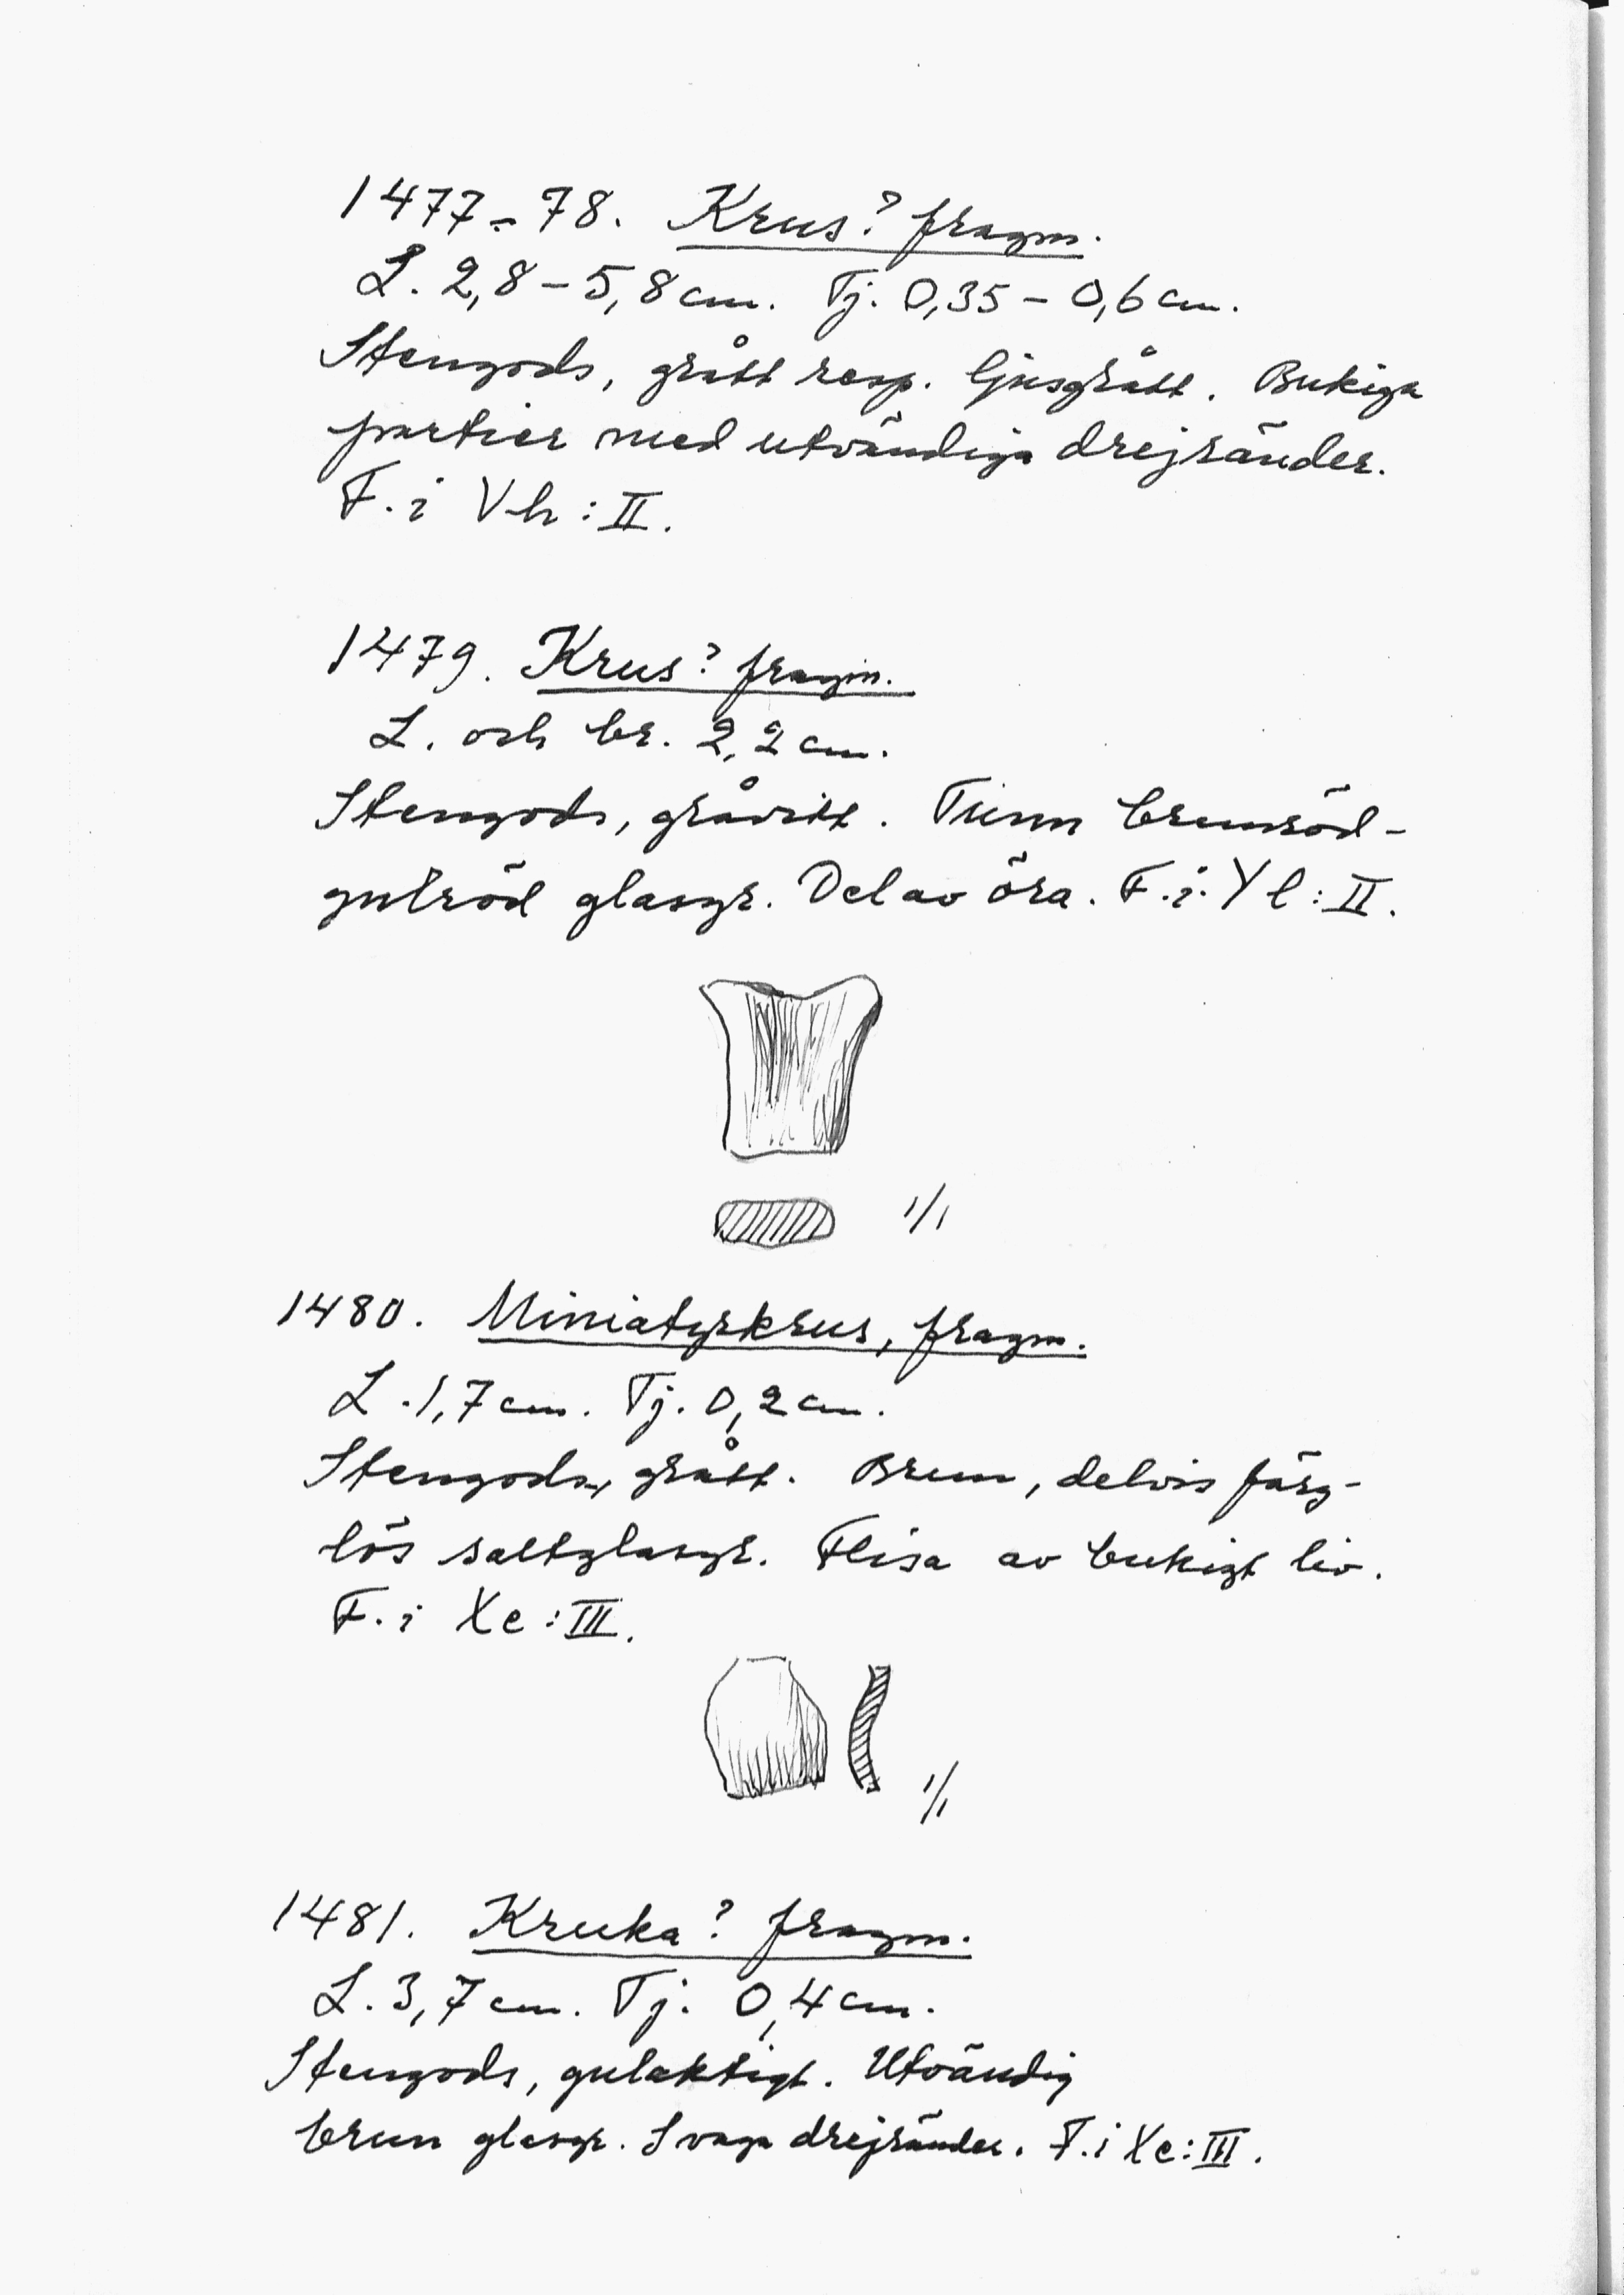 1477-78. Krus? fragm.
L. 2,8-5,8 cm. Tj. 0,35-0,6 cm.
Stengods, grått resp. ljusgrått. Bukiga
partier med utvändiga drejränder.
F. i Vh:II.
1479. Krus? fragm.
L. och br. 2,2 cm.
Stengods, gråvitt. Tunn brunröd-
gulröd glasyr. Del av öra. F. i. Yl:II.
1/1
1480. Miniatyrkrus, fragm.
L. 1,7 cm. Tj. 0,2 cm.
Stengods, grått. Brun, delvis färg-
lös saltglasyr. Flisa av bukigt liv.
F. i Xe:III.
1/1
1481. Kruka? fragm.
L. 3,7 cm. Tj. 0,4 cm.
Stengods, gulaktigt. Utvändig
brun glasyr. Svaga drejränder. F. i Xe:III.